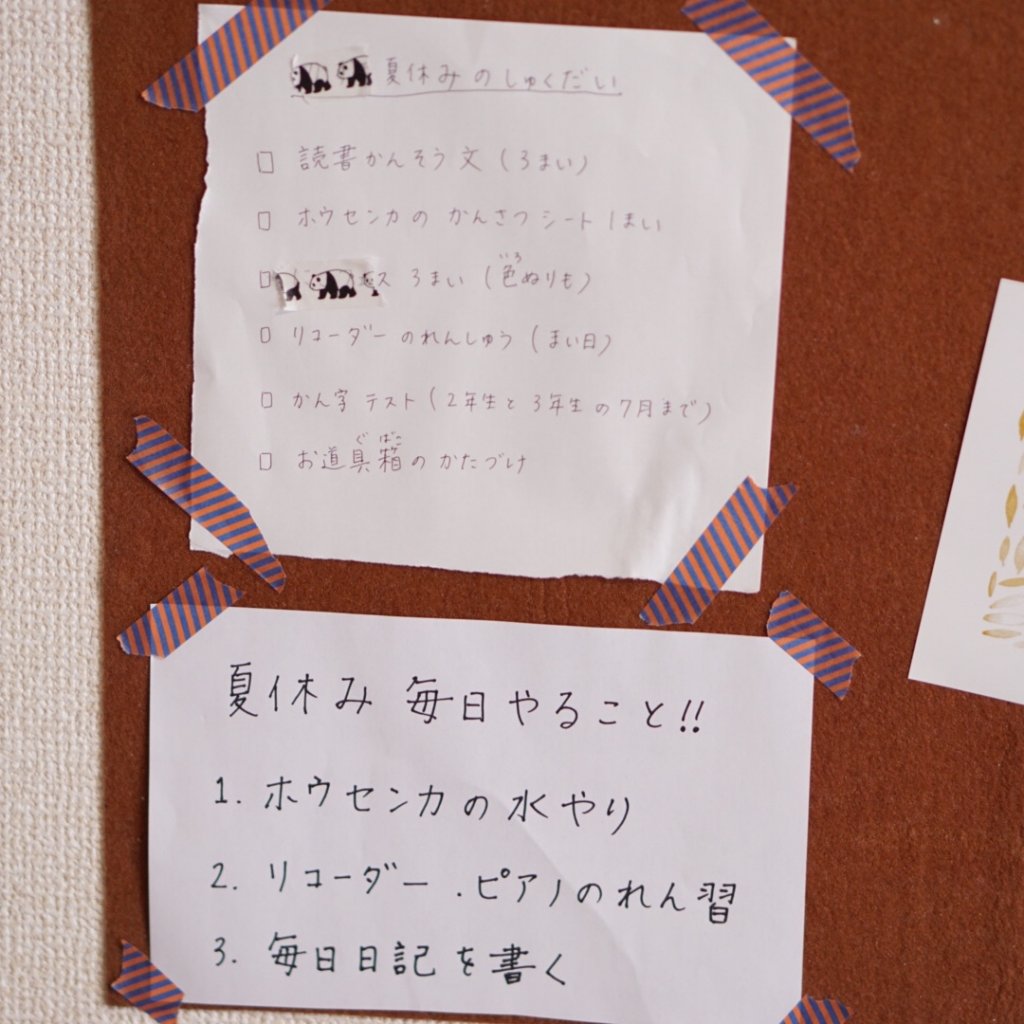 夏休みのしゅくだい
□ 読書かんそう文(3まい)
□ ホウセンカの かんさつシート 1まい
□ 3まい(色ぬりも)
いろ
□ リコーダーのれんしゅう(まい日)
□ かん字テスト(2年生と3年生の7月まで)
□ お道具箱のかたづけ
ぐ ばこ
夏休み 毎日やること!!
1. ホウセンカの水やり
2. リコーダー・ピアノのれん習
3. 毎日日記を書く